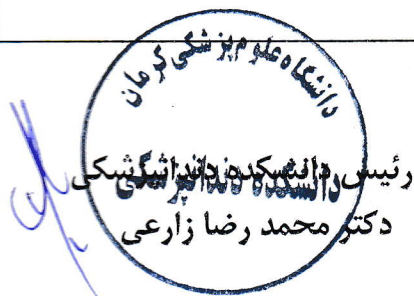 دانشگاه علوم پزشکی کرمان
دانشکده دندانپزشکی
رئیس دانشکده دندانپزشکی
دکتر محمد رضا زارعی